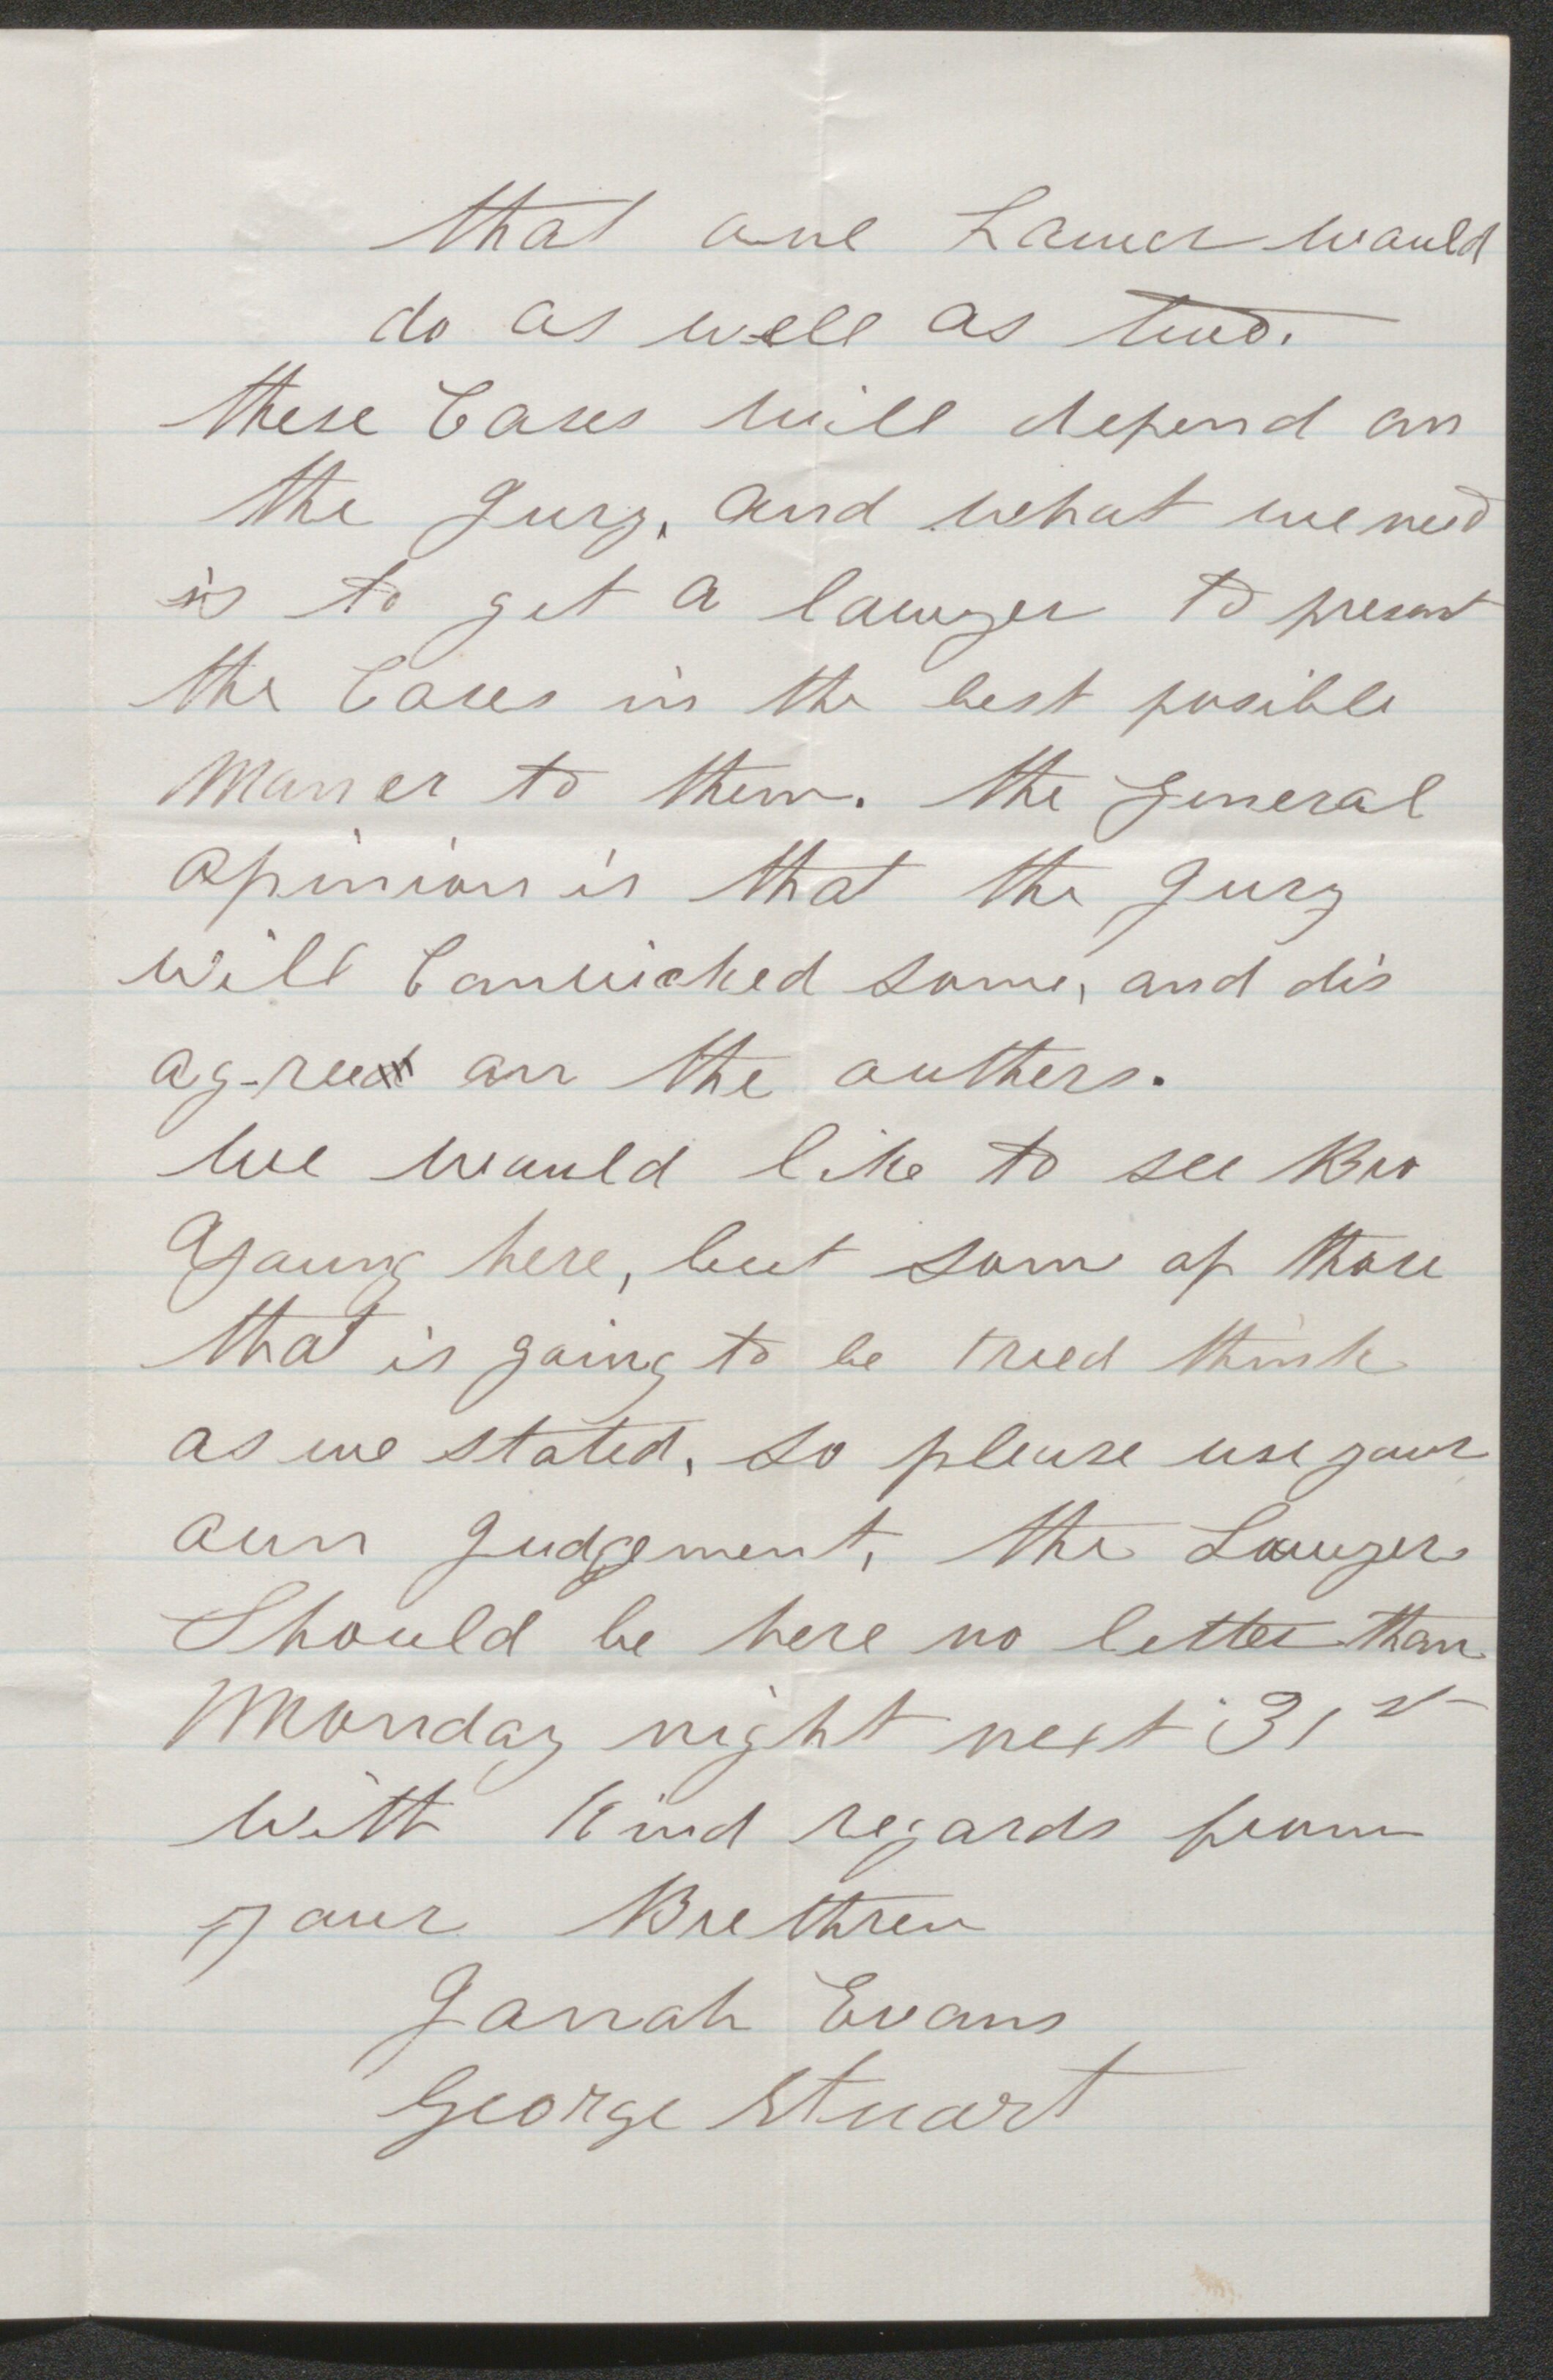 that one Lawer would
do as well as two.
these Cases will depend on
the Jury, and what we need
is to get a lawyer to present
the Cases in the best posible
Manner to them. the general
opinion is that the Jury
will Convicked some, and dis
ag-ree on the outhers.
We would like to see Bro
Young here, but som of those
that is going to be tried think
as we stated, so please use your
own Judgement, the Lawyer
Should be here no letter than
Monday night next 31st
with Kind regards from
your Brethren
Jonah Evans
George Stuart